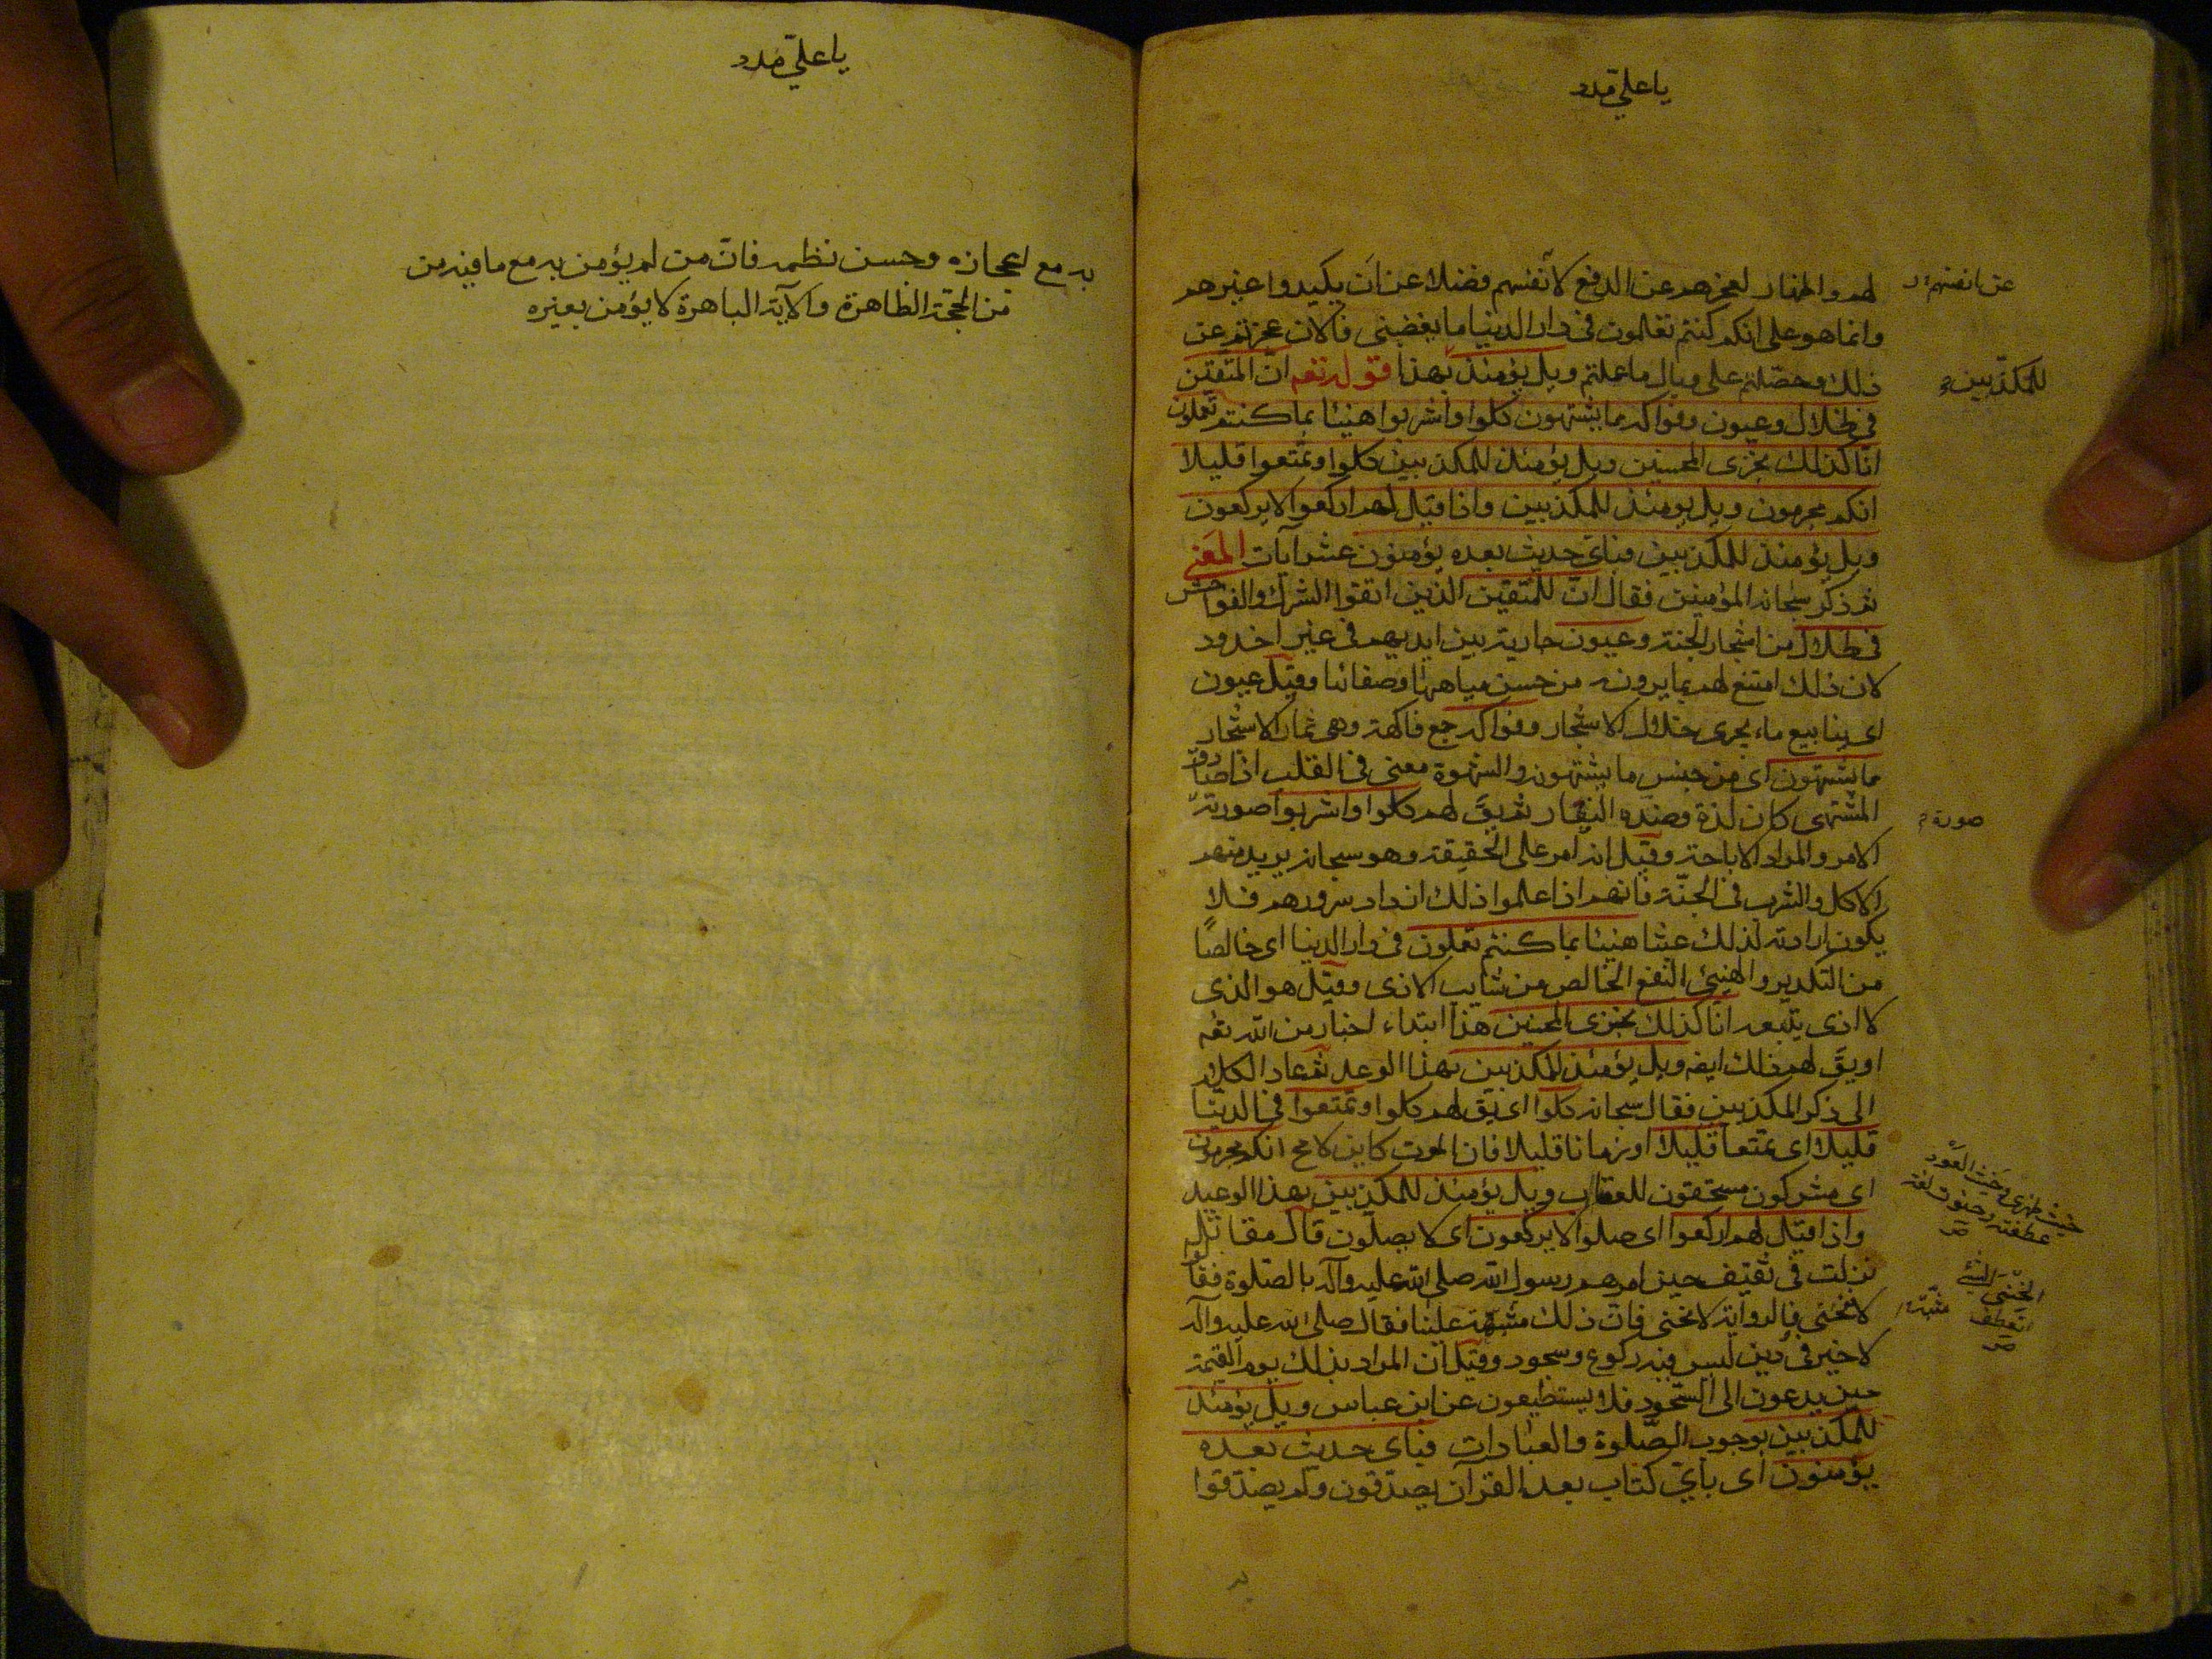 يا علي مدد
لهم والهناد لعجزهم عن الدفع لانفسهم فضلا عن ان يكيدوا غيرهم
عن انفسهم
وانما هو على انكم كنتم تعلمون في دار الدنيا ما يغضبني فالآن عجزتم عن
ذلك وحصلتم على وبال ما عملتم ويل يومئذ بهذا قوله تعم ان المتقين
للمكذبين
في ظلال وعيون وفواكه مما يشتهون كلوا واشربوا هنيئا بما كنتم تعملون
انا كذلك نجزى المحسنين ويل يومئذ للمكذبين كلوا وتمتعوا قليلا
انكم مجرمون ويل يومئذ للمكذبين واذا قيل لهم اركعوا لا يركعون
ويل يومئذ للمكذبين فبأى حديث بعده يؤمنون عشر آيات المعنى
ثم ذكر سبحانه المؤمنين فقال ان المتقين الذين اتقوا الشرك والفواحش
في ظلال من اشجار الجنة وعيون جارية بين ايديهم في غير اخدود
لان ذلك امتع لهم بما يرونه من حسن مياهها وصفائها وقيل عيون
اى ينابيع ماء يجرى خلال الاشجار وفواكه جمع فاكهة وهى ثمار الاشجار
مما يشتهون اى من جنس ما يشتهونه والشهوة معنى في القلب اذا صادف
المشتهى كان لذة وضده النفار ثم يق لهم كلوا واشربوا صورته
صورة
الامر والمراد الاباحة وقيل انه امر على الحقيقة وهو سبحانه يريد منهم
الاكل والشرب في الجنة فانهم اذا علموا ذلك ازداد سرورهم فلا
يكون ارادته لذلك عبثا هنيئا بما كنتم تعملون في دار الدنيا اى خالصًا
من التكدير والهنيئ النفع الخالص من شايب الاذى وقيل هو الذى
لا اذى يتبعه انا كذلك نجزى المحسنين هذا ابتداء اخبار من الله تعم
او يق لهم ذلك ايضه ويل يومئذ للمكذبين بهذا الوعد ثم عاد الكلام
الى ذكر المكذبين فقال سبحانه كلوا اى يق لهم كلوا وتمتعوا في الدنيا
قليلا اى تمتعا قليلا او زمانا قليلا فان الموت كاين لا مح انكم مجرمون
اى مشركون مستحقون للعقاب ويل يومئذ للمكذبين بهذا الوعيد
واذا قيل لهم اركعوا اى صلوا لا يركعون اى لا يصلون قال مقاتل
نزلت في ثقيف حين امرهم رسول الله صلى الله عليه وآله بالصلوة فقالوا
لا ننحنى والرواية لا نحنى فان ذلك مسبة علينا فقال صلى الله عليه وآله
لا خير في دين ليس فيه ركوع وسجود وقيل ان المراد بذلك يوم القيمة
حين يدعون الى السجود فلا يستطيعون عن ابن عباس ويل يومئذ
للمكذبين بوجوب الصلوة والعبادات فبأى حديث بعده
يؤمنون اى بأى كتاب بعد القرآن يصدقون ولم يصدقوا
حنيت ظهرى وحنيت العود
عطفته وحنوت لغة
ص
انحنى الشئ
انعطف
ص
يا علي مدد
به مع اعجازه وحسن نظمه فان من لم يؤمن به مع ما فيه من
من الحجة الظاهرة والآية الباهرة لا يؤمن بغيره